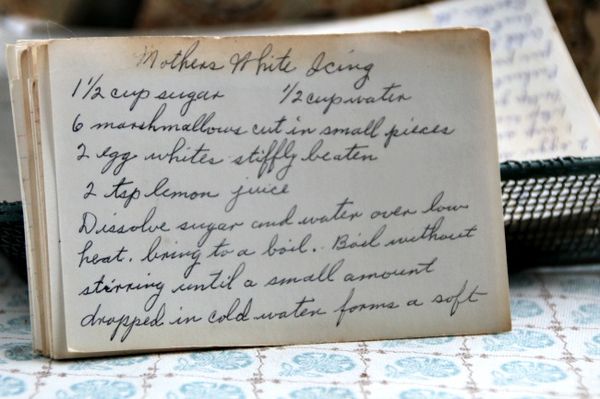 Mothers White Icing
1 1/2 cup sugar 1/2 cup water
6 marshmallows cut in small pieces
2 egg whites stiffly beaten
2 tsp lemon juice
Dissolve sugar and water over low
heat. bring to a boil. Boil without
stirring until a small amount
dropped in cold water forms a soft